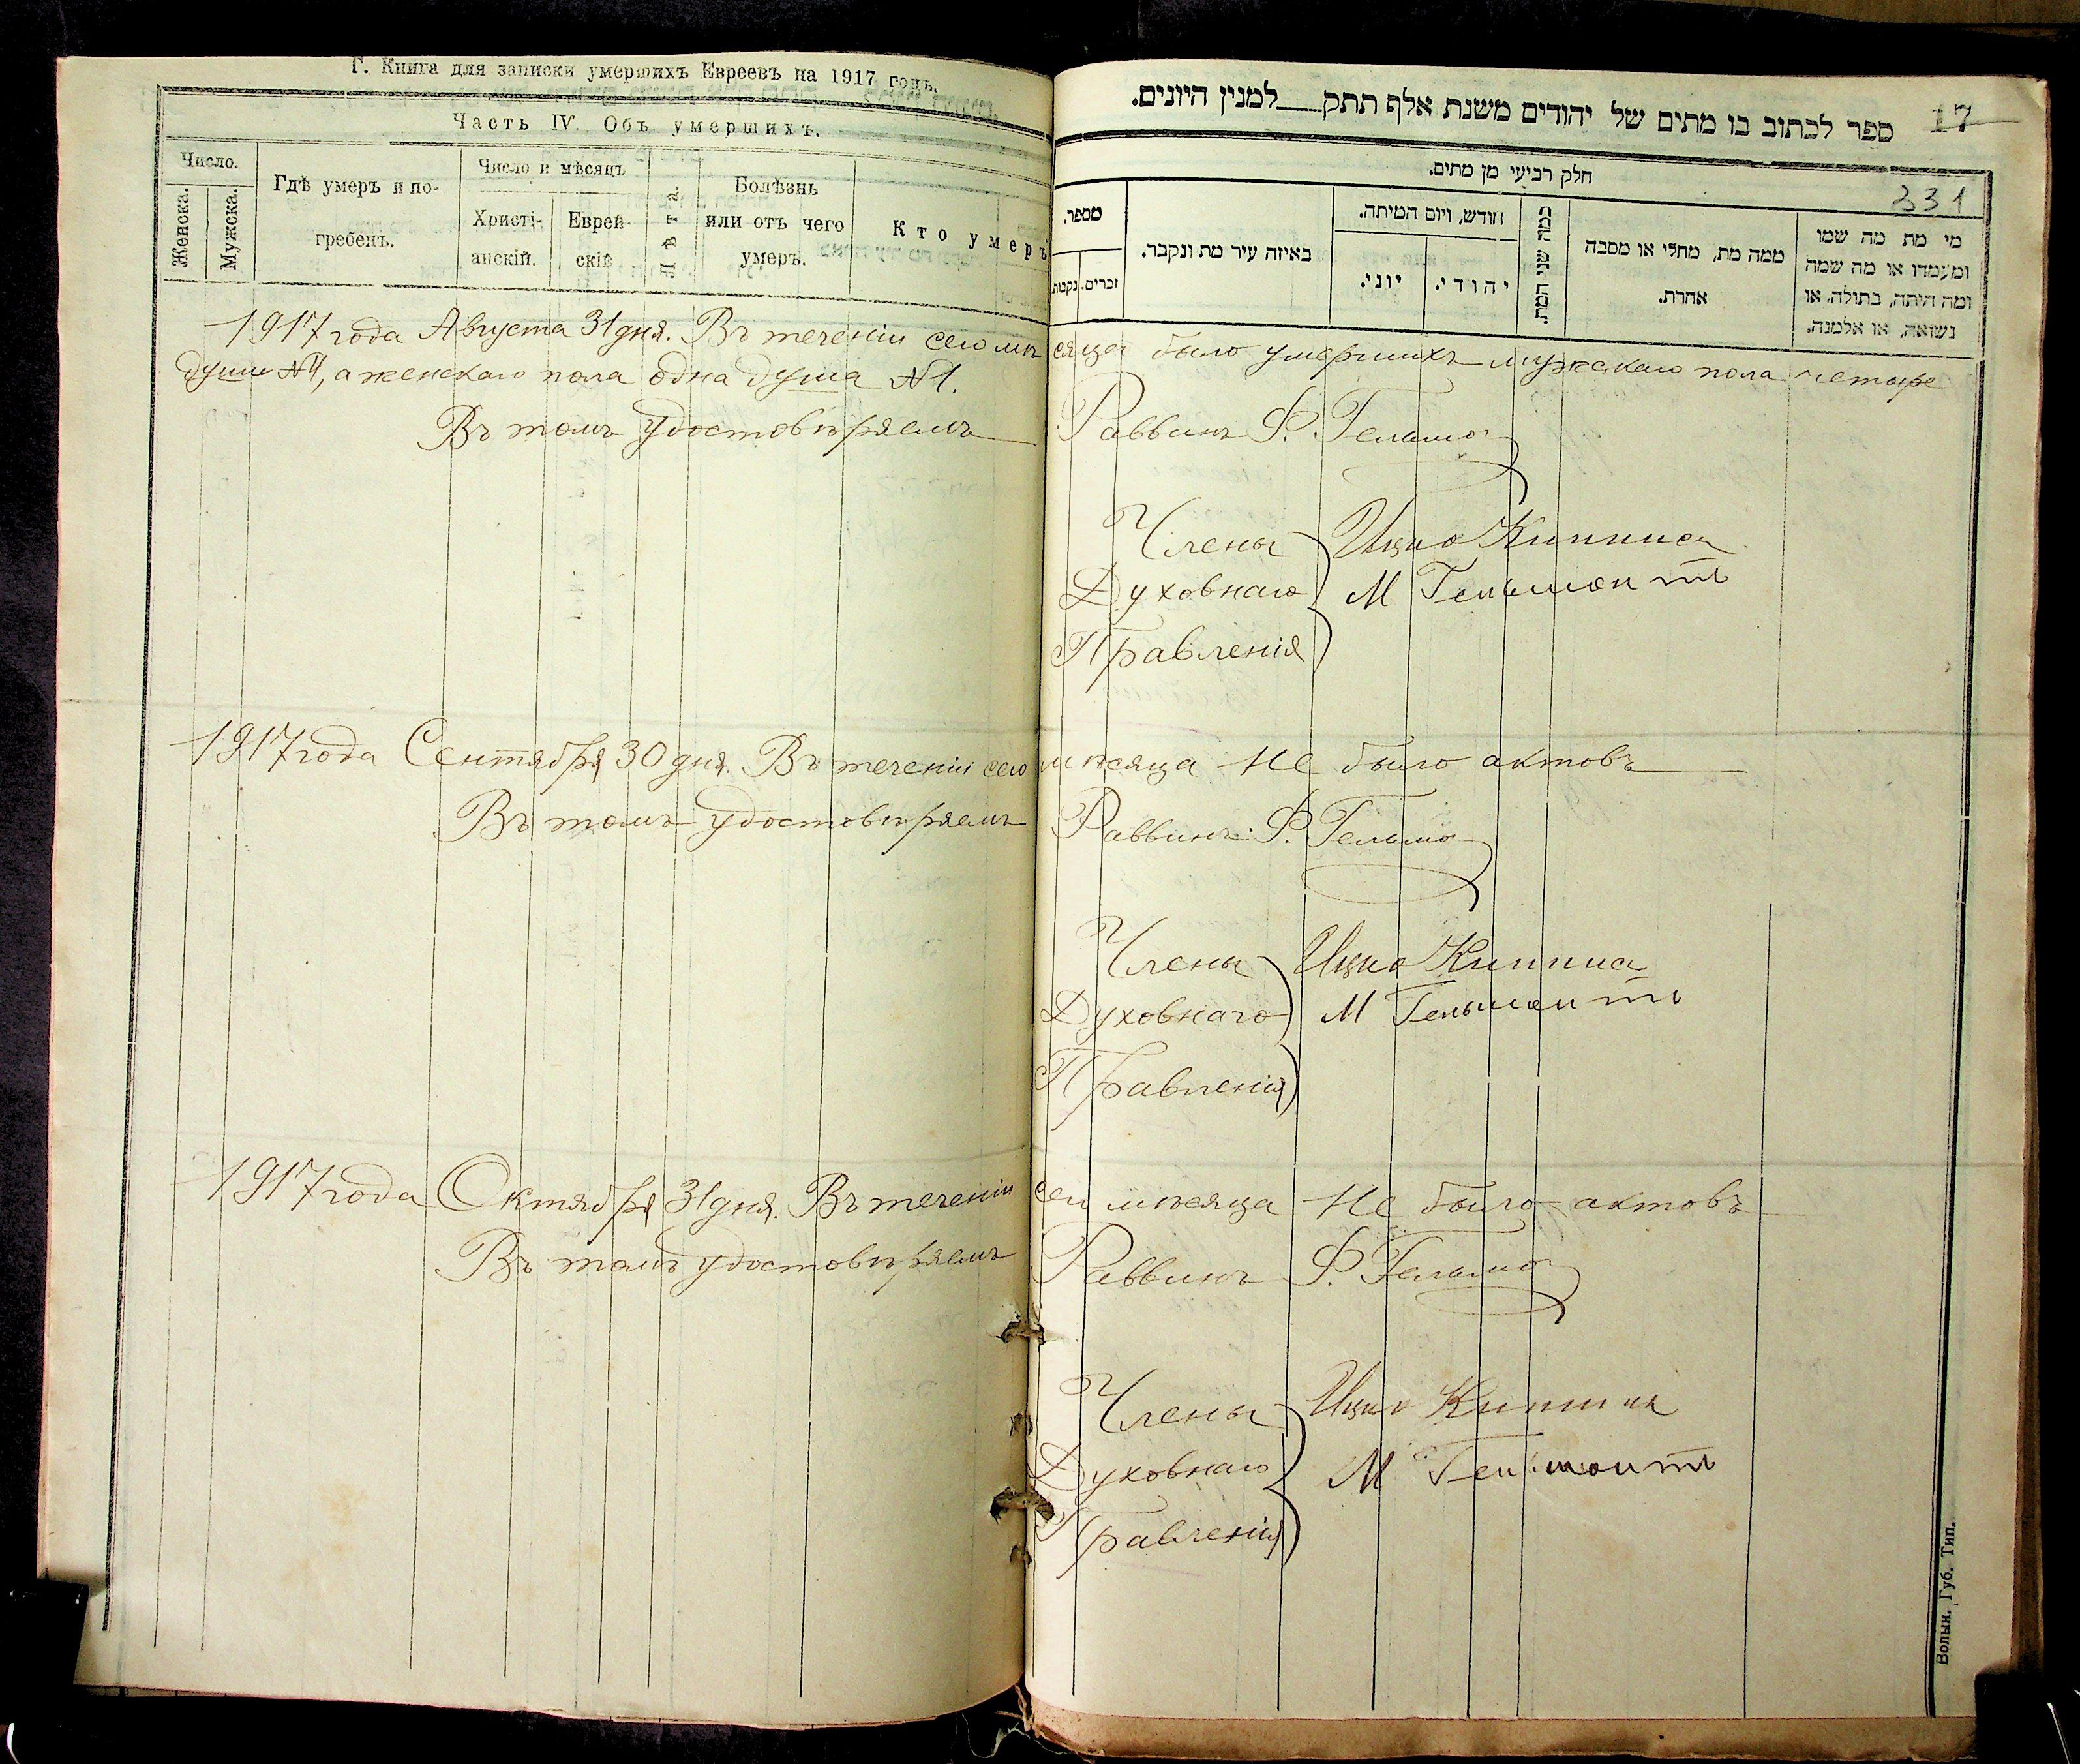 Г. Книга для записки умершихъ Евреевъ на 1917 годъ.
Часть IV. Объ умершихъ.
Число.
Женска.
Мужска.
Гдѣ умеръ и по-
гребенъ.
Число и мѣсяцъ
Христі-
анскій.
Еврей-
скій
Лѣта.
Болѣзнь
или отъ чего
умеръ.
Кто умеръ
17
ספר לכתוב בו מתים של יהודים משנת אלף תתק למנין היונים.
331
חלק רביעי מן מתים.
מספר.
זכרים.
נקבות
באיזה עיר מת ונקבר.
חודש, ויום המיתה.
יוני.
יהודי.
כמה שני המת.
ממה מת, מחלי או מסבה
אחרת.
מי מת מה שמו
ומעמדו או מה שמה
ומה היתה, בתולה, או
נשואה, או אלמנה.
1917 года Августа 31 дня. Въ теченіи сего мѣсяца было умершихъ мужскаго пола четыре
души №4, а женскаго пола одна душа №1.
Въ томъ удостовѣряемъ Раввинъ Ф.
Члены Ицко
Духовнаго М Гельман
Правленія
1917 года Сентября 30 дня. Въ теченіи сего мѣсяца не было актовъ
Въ томъ удостовѣряемъ Раввинъ Ф.
Члены Ицко
Духовнаго М
Правленія
1917 года Октября 31 дня. Въ теченіи сего мѣсяца не было актовъ
Въ томъ удостовѣряемъ Раввинъ Ф.
Члены Ицко
Духовнаго М
Правленія
Волын. Губ. Тип.